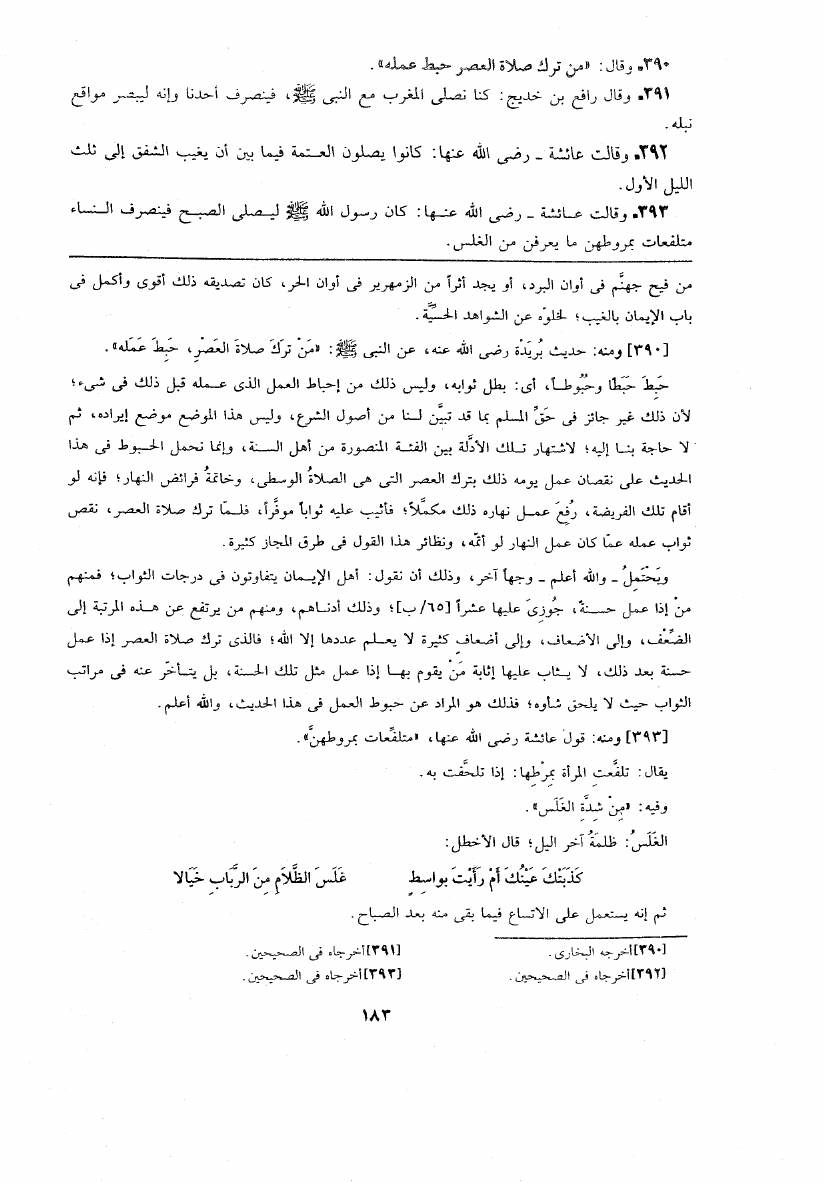 ٣٩٠ـ وقال: «من ترك صلاة العصر حبط عمله».
٣٩١ـ وقال رافع بن خديج: كنا نصلى المغرب مع النبى ﷺ، فينصرف أحدنا وإنه ليبصر مواقع
نبله.
٣٩٢ـ وقالت عائشة ـ رضى الله عنها: كانوا يصلون العـتمة فيما بين أن يغيب الشفق إلى ثلث
الليل الأول.
٣٩٣ـ وقالت عـائشة ـ رضى الله عنـها: كان رسول الله ﷺ ليـصلى الصبـح فينصرف النـساء
متلفعات بمروطهن ما يعرفن من الغلس.
من فيح جهنَّم فى أوان البرد، أو يجد أثراً من الزمهرير فى أوان الحر، كان تصديقه ذلك أقوى وأكمل فى
باب الإيمان بالغيب؛ لخلوّه عن الشواهد الحسـيَّة.
[٣٩٠] ومنه: حديث بُريَدْة رضى الله عنه، عن النبى ﷺ: «مَنْ تركَ صلاةَ العَصْرِ، حَبِطَ عَمَله».
حَبِطَ حَبَطًا وحُبُوطـاً، أى: بطل ثوابه، وليس ذلك من إحباط العمل الذى عـمله قبل ذلك فى شىء؛
لأن ذلك غير جائز فى حَقِّ المسلم بما قد تبيَّن لـنا من أصول الشرع، وليس هذا الموضع موضع إيراده، ثم
لا حاجة بنـا إليه؛ لاشتهار تـلك الأدلَّة بين الفئـة المنصورة من أهل السـنة، وإنما نحمل الحـبوط فى هذا
الحديث على نقصان عمل يومه ذلك بترك العصر التى هى الصلاةُ الوسطى، وخاتمةُ فرائض النهار؛ فإنه لو
أقام تلك الفريضة، رُفِعَ عمـل نهاره ذلك مكمَّلاً؛ فأثيب عليه ثواباً موفَّراً، فلـمَّا ترك صلاة العصر، نقص
ثواب عمله عمّا كان عمل النهار لو أتمّه، ونظائر هذا القول فى طرق المجاز كثيرة.
ويَحْتَمِلُ ـ والله أعلم ـ وجهاً آخر، وذلك أن نقول: أهل الإيـمان يتفاوتون فى درجات الثواب؛ فمنهم
منْ إذا عمل حسـنةً، جُوزِىَ عليها عشراً [٦٥/ب]؛ وذلك أدنـاهم، ومنهم من يرتفع عن هـذه المرتبة إلى
الضِّعْف، وإلى الأضـعاف، وإلى أضعاف كثيرة لا يعـلم عددها إلا الله؛ فالذى ترك صلاة العصر إذا عمل
حسنة بعد ذلك، لا يـثاب عليها إثابة مَنْ يقوم بهـا إذا عمل مثل تلك الحسنة، بل يتـأخّر عنه فى مراتب
الثواب حيث لا يلحق شأوه؛ فذلك هو المراد عن حبوط العمل فى هذا الحديث، والله أعلم.
[٣٩٣] ومنه: قول عائشة رضى الله عنها، «متلفِّعات بمروطهنَّ».
يقال: تلفَّعتِ المرأة بِمِرْطِها: إذا تلحَّفت به.
وفيه: «مِنْ شِدَّةِ الغَلَسِ».
الغَلَسُ: ظلمةُ آخرِ اليل؛ قال الأخطل:
كَذَبَتْكَ عَيْنُكَ أمْ رَأَيْتَ بواسِطٍ غَلَسَ الظَّلاَمِ مِنَ الرَّبَابِ خَيَالا
ثم إنه يستعمل على الاتسـاع فيما بقى منه بعد الصباح.
[٣٩٠] أخرجه البخارى. [٣٩١] أخرجاه فى الصحيحين.
[٣٩٢] أخرجاه فى الصحيحين. [٣٩٣] أخرجاه فى الصحيحين.
١٨٣